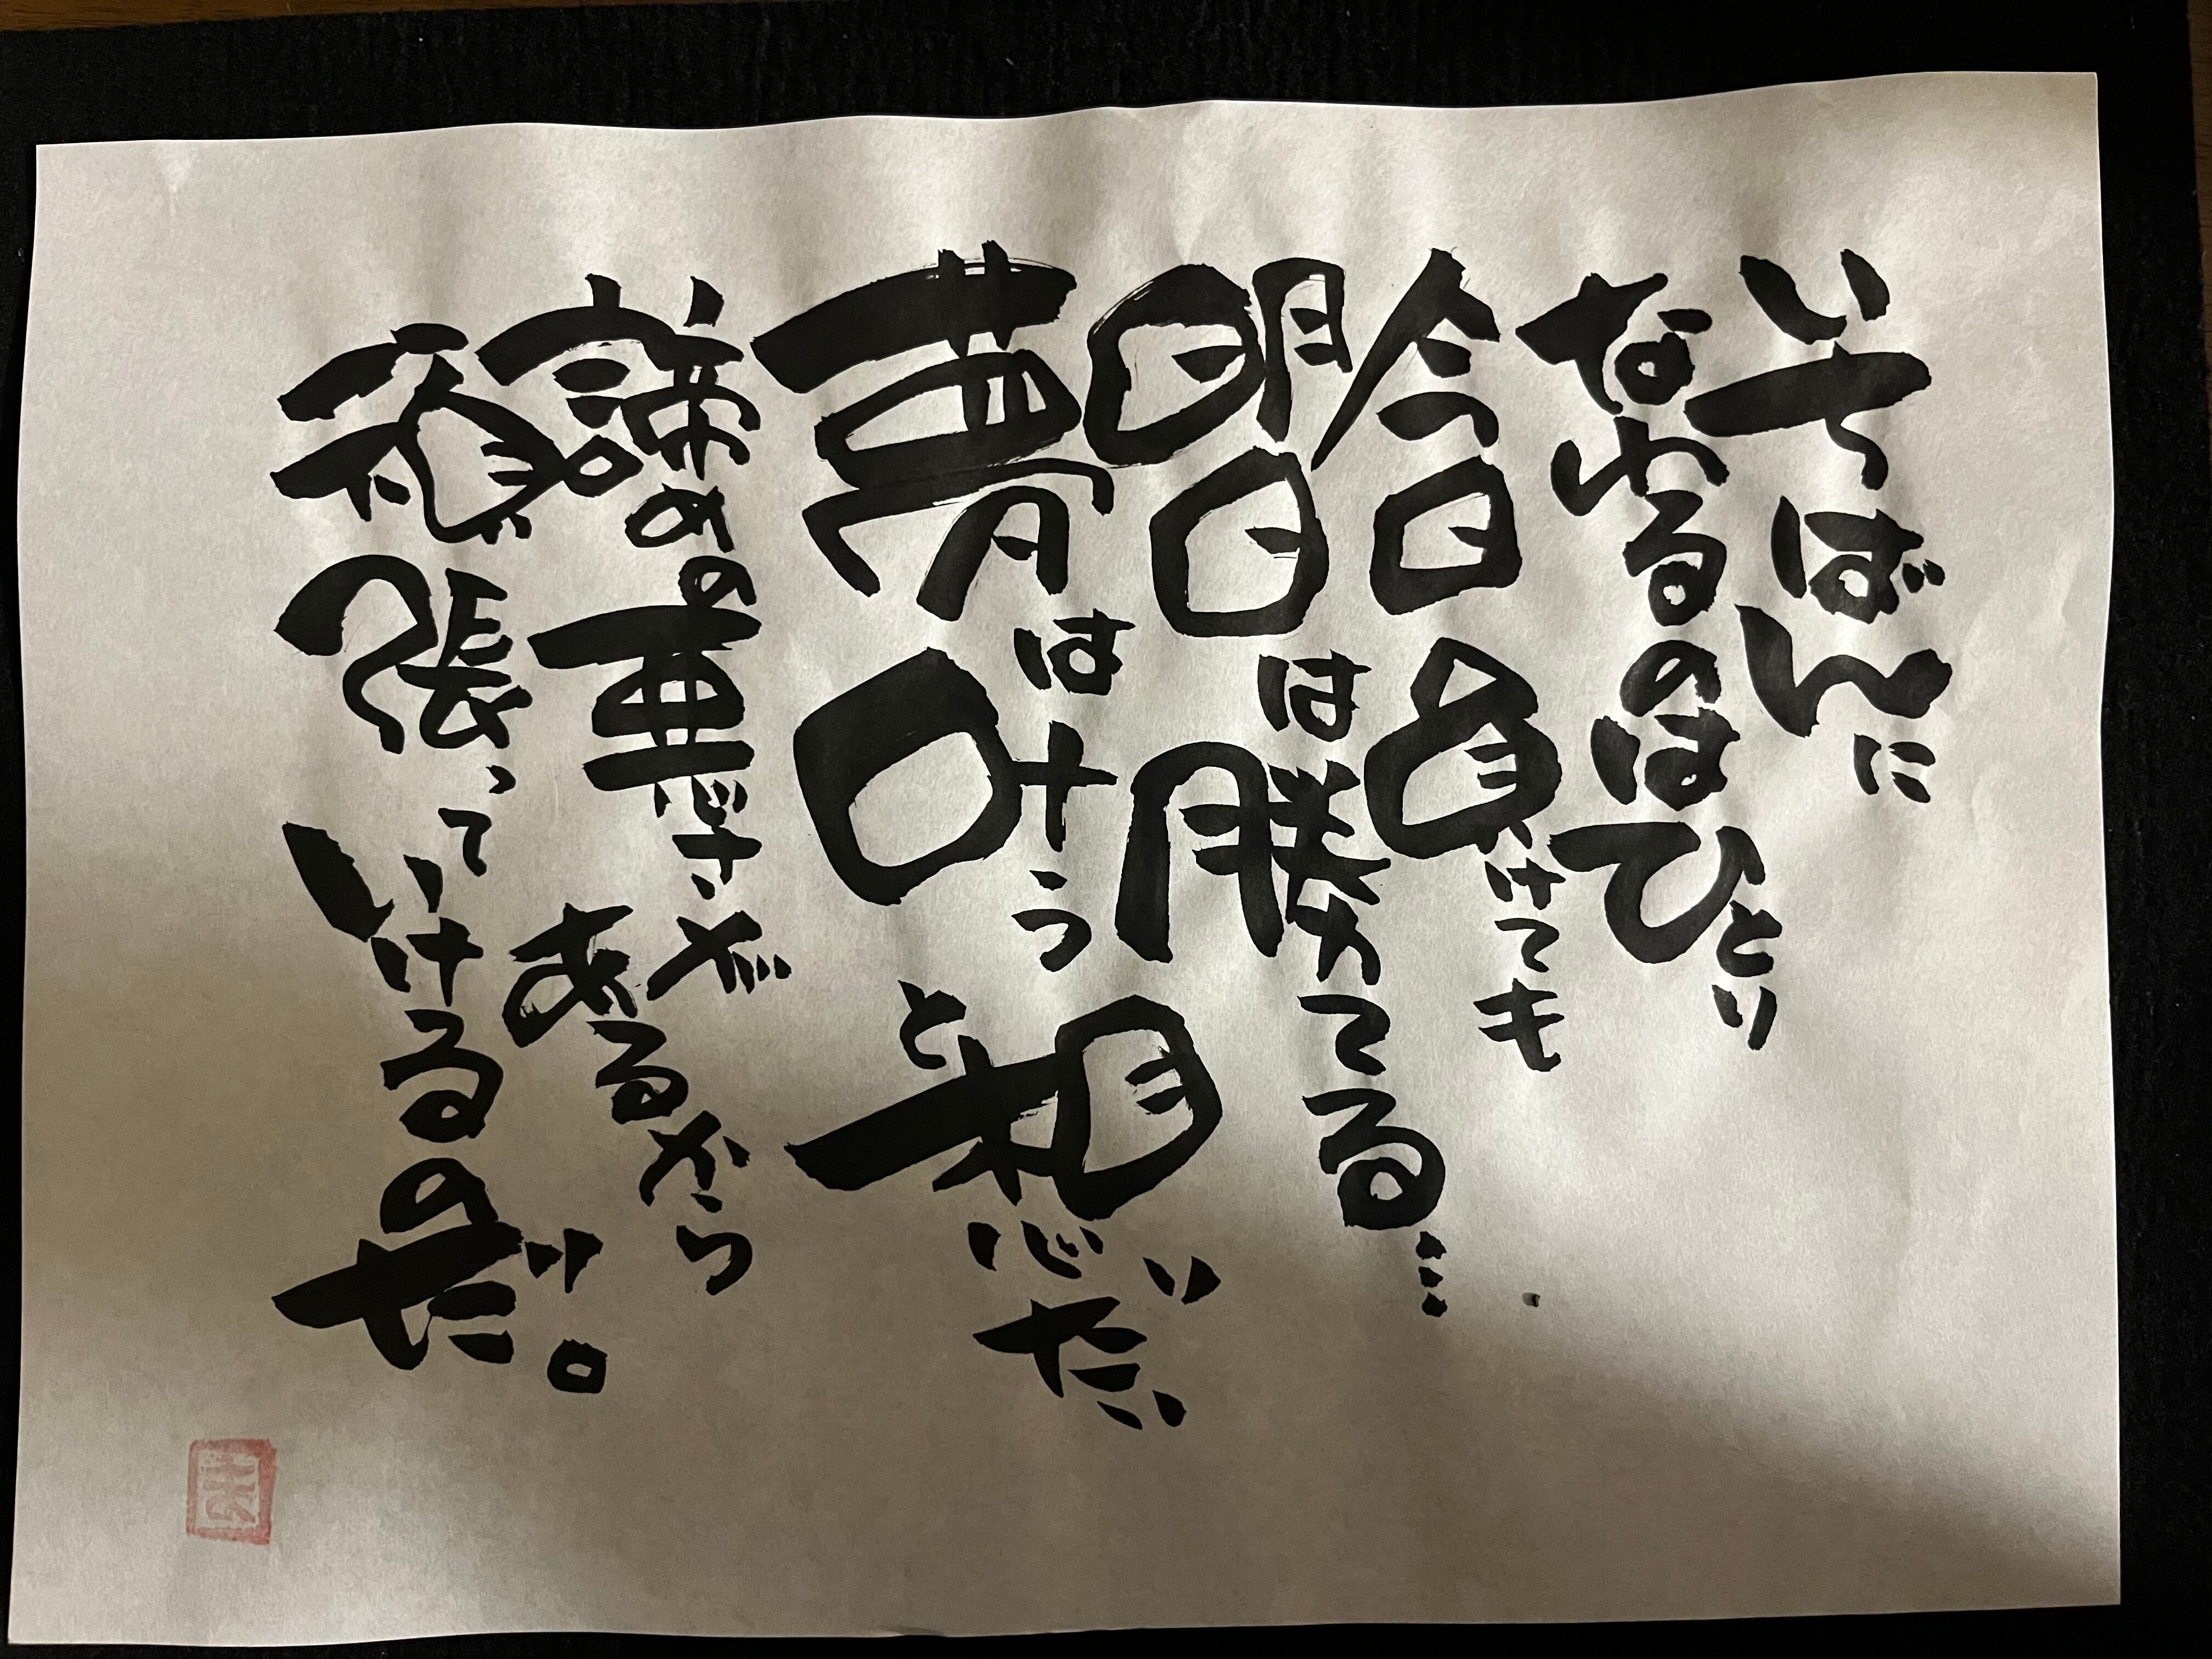 いちばんに
なれるのはひとり
今日負けても
明日は勝てる…
夢は叶う
と想いたい
諦めの悪さが
あるから
頑張って
いけるのだ。